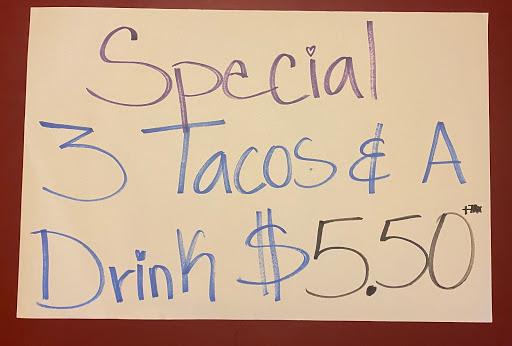 Special
3 Tacos & A
Drink $5.50